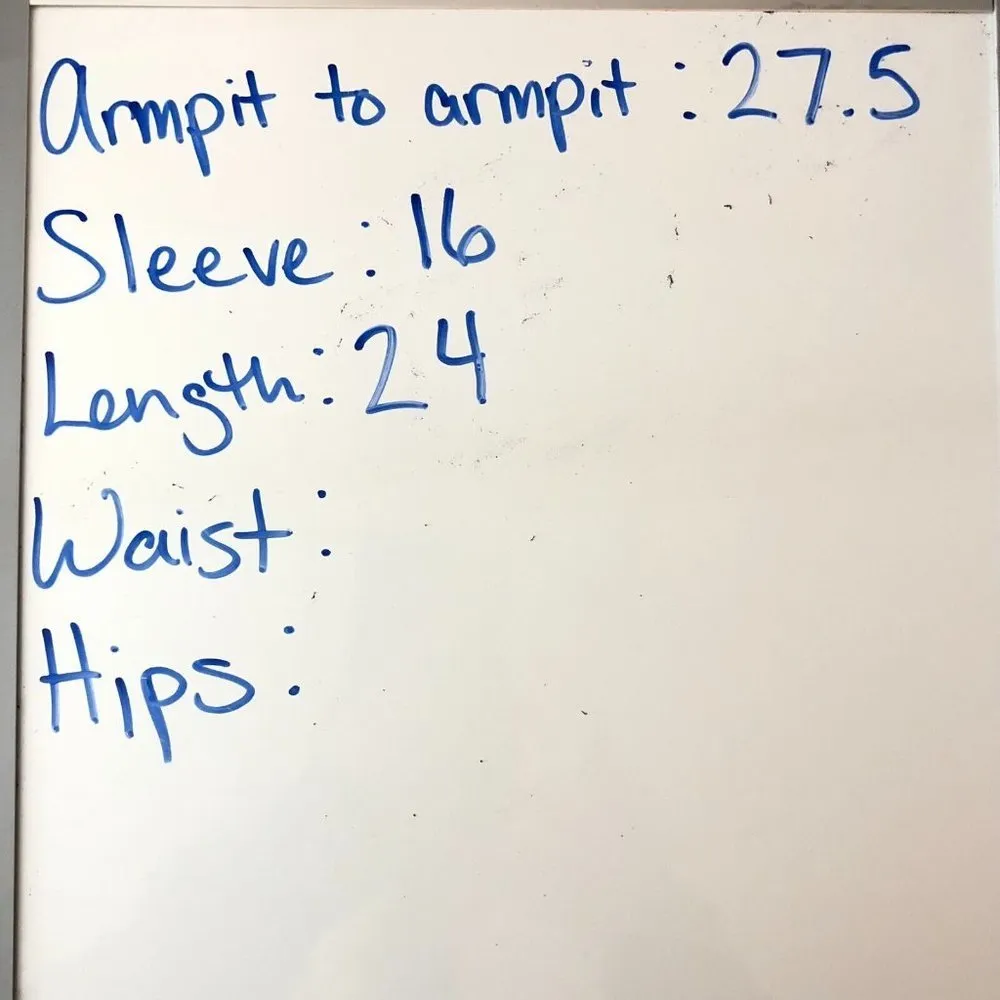 Armpit to armpit : 27.5
Sleeve : 16
Length : 24
Waist :
Hips :